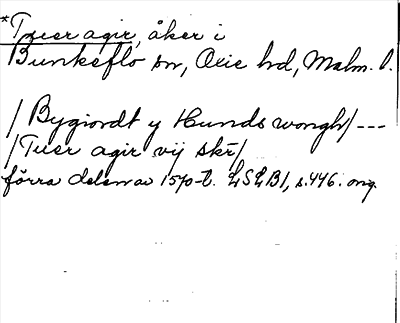 *Tuer agir, åker i
Bunkeflo sn, Oxie hd, Malm. l.
/ Bygiordt y Hunds wongh/ ---
/Tuer agir vij skr/
förra delen av 1570-t. LSLB1, s. 446. ong.